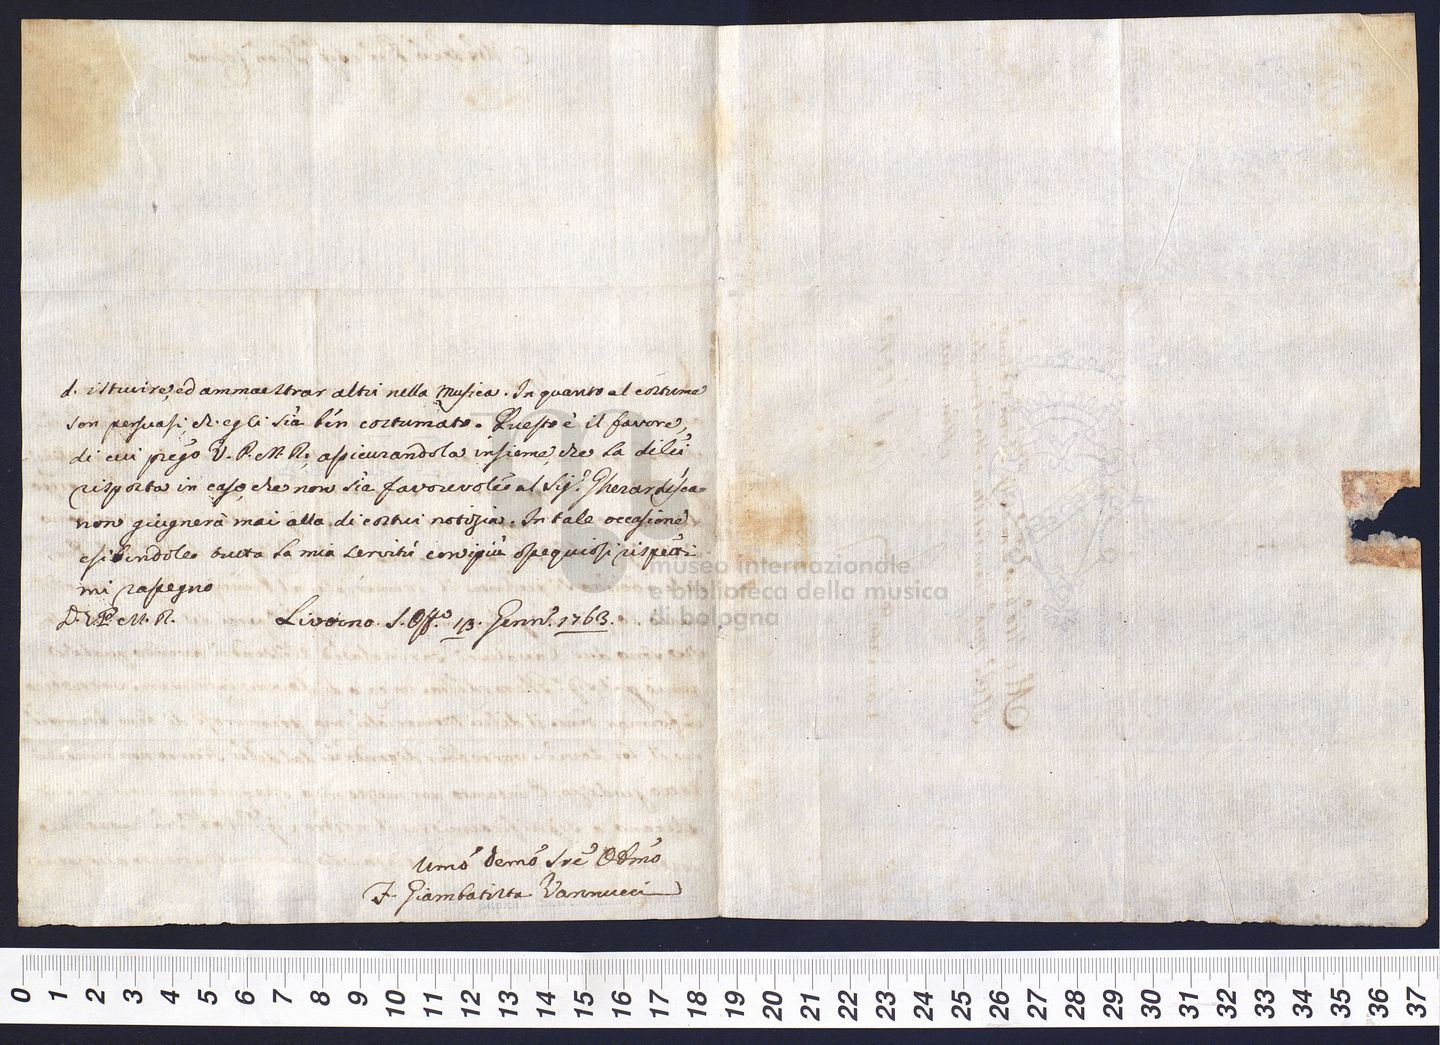 d'istruire, ed ammaestrar altri nella Musica. In quanto al costume
son persuasi, che egli sia ben costumato. Questo è il favore,
di cui prego V. P. M. R., assicurandola insieme, che la di lei
risposta in caso, che non sia favorevole al Sig.r Gherardesca
non giugnerà mai alla di costui notizia. In tale occasione
esibendole tutta la mia servitù con i più ossequiosi rispetti
mi rassegno
D. V. P. M. R.
Livorno S. Offo. 13. Genn.o 1763.
Umo Devmo Sre Obbmo
F. Giambatista Vannucci
museo internazionale
e biblioteca della musica
di bologna
0 1 2 3 4 5 6 7 8 9 10 11 12 13 14 15 16 17 18 19 20 21 22 23 24 25 26 27 28 29 30 31 32 33 34 35 36 37